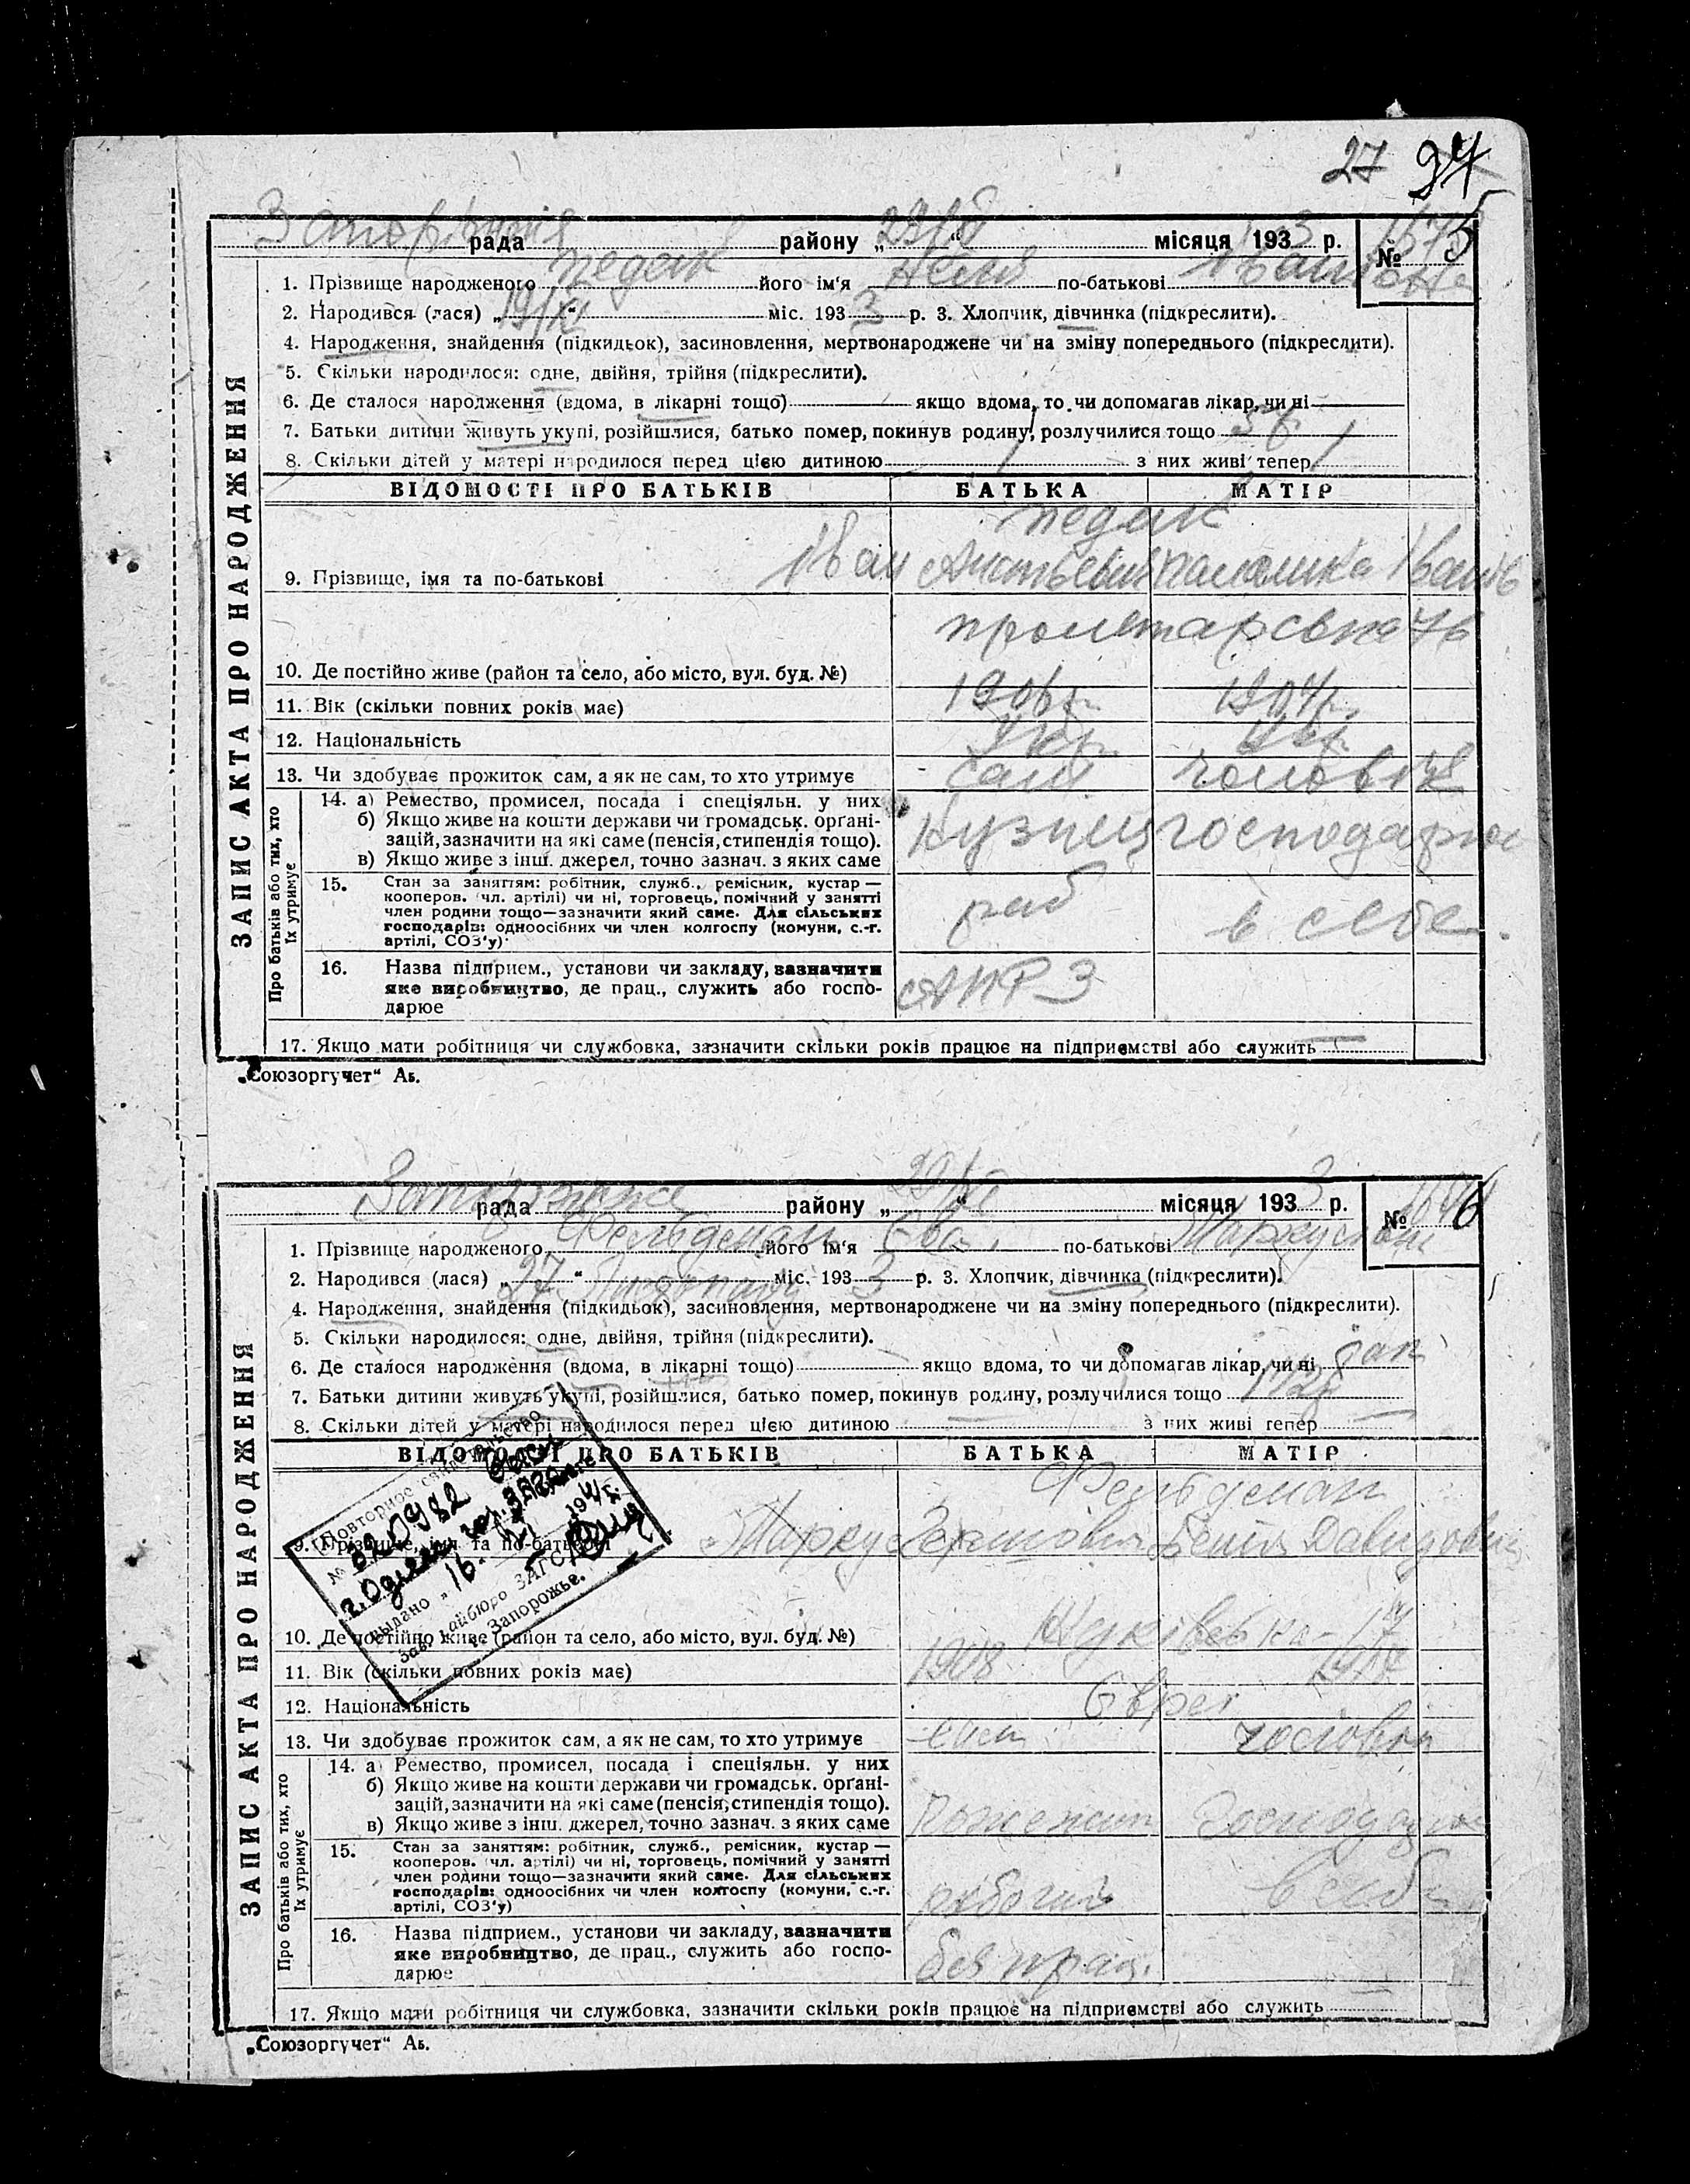 27 94
рада району „29/XI“ місяця 1933 р. №
1. Прізвище народженого Педак його ім‘я Неля по-батькові Івановна
2. Народився (лася) „19/XI“ міс. 1933 р. 3. Хлопчик, дівчинка (підкреслити).
4. Народження, знайдення (підкидьок), засиновлення, мертвонароджене чи на зміну попереднього (підкреслити).
5. Скільки народилося: одне, двійня, трійня (підкреслити).
6. Де сталося народження (вдома, в лікарні тощо) якщо вдома, то чи допомагав лікар, чи ні
7. Батьки дитини живуть укупі, розійшлися, батько помер, покинув родину, розлучилися тощо
8. Скільки дітей у матері народилося перед цією дитиною 1 з них живі тепер 1
ЗАПИС АКТА ПРО НАРОДЖЕННЯ
ВІДОМОСТІ ПРО БАТЬКІВ БАТЬКА МАТІР
Педак
9. Прізвище, імя та по-батькові Іван
Пролетарська 76
10. Де постійно живе (район та село, або місто, вул. буд. №)
11. Вік (скільки повних років має) 1906р. 1904р.
12. Національність Укр. Укр.
13. Чи здобуває прожиток сам, а як не сам, то хто утримує сам чоловік
Про батьків або тих, хто їх утримує
14. а) Ремество, промисел, посада і спеціяльн. у них
б) Якщо живе на кошти держави чи громадськ. орґані-
зацій, зазначити на які саме (пенсія, стипендія тощо).
в) Якщо живе з інш. джерел, точно зазнач. з яких саме
Кузнец господарює
15. Стан за заняттям: робітник, служб., ремісник, кустар —
кооперов. (чл. артілі) чи ні, торговець, помічний у занятті
член родини тощо—зазначити який саме. Для сільських
господарів: одноосібних чи член колгоспу (комуни, с.-г.
артілі, СОЗ‘у)
раб в себе.
16. Назва підприєм., установи чи закладу, зазначити
яке виробництво, де прац., служить або госпо-
дарює
17. Якщо мати робітниця чи службовка, зазначити скільки років працює на підприємстві або служить —
„Союзоргучет“ Аб.
рада району „29/XI“ місяця 1933 р. № 6
1. Прізвище народженого Фельдман його ім‘я Ева по-батькові
2. Народився (лася) „27“ Листопад міс. 1933 р. 3. Хлопчик, дівчинка (підкреслити).
4. Народження, знайдення (підкидьок), засиновлення, мертвонароджене чи на зміну попереднього (підкреслити).
5. Скільки народилося: одне, двійня, трійня (підкреслити).
6. Де сталося народження (вдома, в лікарні тощо) якщо вдома, то чи допомагав лікар, чи ні
7. Батьки дитини живуть укупі, розійшлися, батько помер, покинув родину, розлучилися тощо
8. Скільки дітей у матері народилося перед цією дитиною — з них живі тепер —
ЗАПИС АКТА ПРО НАРОДЖЕННЯ
ВІДОМОСТІ ПРО БАТЬКІВ БАТЬКА МАТІР
Фельдман
9. Прізвище, імя та по-батькові Маркус Давидовна
Повторное свидетельство
№ 320982
г. Одесса
выдано „16“
Зав. райбюро ЗАГС
г. Запорожье.
10. Де постійно живе (район та село, або місто, вул. буд. №)
11. Вік (скільки повних років має) 1908
12. Національність Євреї
13. Чи здобуває прожиток сам, а як не сам, то хто утримує сам чоловік
Про батьків або тих, хто їх утримує
14. а) Ремество, промисел, посада і спеціяльн. у них
б) Якщо живе на кошти держави чи громадськ. орґані-
зацій, зазначити на які саме (пенсія, стипендія тощо).
в) Якщо живе з інш. джерел, точно зазнач. з яких саме
Господарює
15. Стан за заняттям: робітник, служб., ремісник, кустар —
кооперов. (чл. артілі) чи ні, торговець, помічний у занятті
член родини тощо—зазначити який саме. Для сільських
господарів: одноосібних чи член колгоспу (комуни, с.-г.
артілі, СОЗ‘у)
рабочий в себе
16. Назва підприєм., установи чи закладу, зазначити
яке виробництво, де прац., служить або госпо-
дарює
без прац.
17. Якщо мати робітниця чи службовка, зазначити скільки років працює на підприємстві або служить —
„Союзоргучет“ Аб.